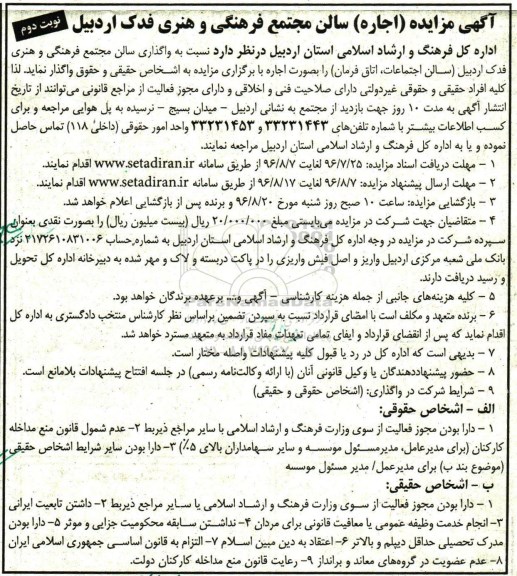 آگهی مزایده (اجاره) سالن مجتمع فرهنگی و هنری فدک اردبیل
نوبت دوم
اداره کل فرهنگ و ارشاد اسلامی استان اردبیل درنظر دارد نسبت به واگذاری سالن مجتمع فرهنگی و هنری
فدک اردبیل (سالن اجتماعات، اتاق فرمان) را بصورت اجاره با برگزاری مزایده به اشخاص حقیقی و حقوق واگذار نماید. لذا
کلیه افراد حقیقی و حقوقی غیردولتی دارای صلاحیت فنی و اخلاقی و دارای مجوز فعالیت از مراجع قانونی می‌توانند از تاریخ
انتشار آگهی به مدت ۱۰ روز جهت بازدید از مجتمع به نشانی اردبیل - میدان بسیج - نرسیده به پل هوایی مراجعه و برای
کسب اطلاعات بیشتر با شماره تلفن‌های ۳۳۲۳۱۴۴۳ و ۳۳۲۳۱۴۵۳ واحد امور حقوقی (داخلی ۱۱۸) تماس حاصل
نموده و یا به اداره کل فرهنگ و ارشاد اسلامی استان اردبیل مراجعه نمایند.
۱ - مهلت دریافت اسناد مزایده: ۹۶/۷/۲۵ لغایت ۹۶/۸/۷ از طریق سامانه www.setadiran.ir اقدام نمایند.
۲ - مهلت ارسال پیشنهاد مزایده: ۹۶/۸/۷ لغایت ۹۶/۸/۱۷ از طریق سامانه www.setadiran.ir اقدام نمایند.
۳ - بازگشایی مزایده: ساعت ۱۰ صبح روز شنبه مورخ ۹۶/۸/۲۰ و برنده پس از بازگشایی اعلام خواهد شد.
۴ - متقاضیان جهت شرکت در مزایده می‌بایستی مبلغ ۲۰/۰۰۰/۰۰۰ ریال (بیست میلیون ریال) را بصورت نقدی بعنوان
سپرده شرکت در مزایده در وجه اداره کل فرهنگ و ارشاد اسلامی استان اردبیل به شماره حساب ۲۱۷۲۶۱۰۸۳۱۰۰۶ نزد
بانک ملی شعبه مرکزی اردبیل واریز و اصل فیش واریزی را در پاکت دربسته و لاک و مهر شده به دبیرخانه اداره کل تحویل
و رسید دریافت دارند.
۵ - کلیه هزینه‌های جانبی از جمله هزینه کارشناسی - آگهی و... برعهده برندگان خواهد بود.
۶ - برنده متعهد و مکلف است با امضای قرارداد نسبت به سپردن تضمین براساس نظر کارشناس منتخب دادگستری به اداره کل
اقدام نماید که پس از انقضای قرارداد و ایفای تمامی تعهدات مفاد قرارداد به متعهد مسترد خواهد شد.
۷ - بدیهی است که اداره کل در رد یا قبول کلیه پیشنهادات واصله مختار است.
۸ - حضور پیشنهاددهندگان یا وکیل قانونی آنان (با ارائه وکالت‌نامه رسمی) در جلسه افتتاح پیشنهادات بلامانع است.
۹ - شرایط شرکت در واگذاری: (اشخاص حقوقی و حقیقی)
الف - اشخاص حقوقی:
۱ - دارا بودن مجوز فعالیت از سوی وزارت فرهنگ و ارشاد اسلامی با سایر مراجع ذیربط ۲- عدم شمول قانون منع مداخله
کارکنان (برای مدیرعامل، مدیرمسئول موسسه و سایر سهامداران بالای ۵٪) ۳- دارا بودن سایر شرایط اشخاص حقیقی
(موضوع بند ب) برای مدیرعمل/ مدیر مسئول موسسه
ب - اشخاص حقیقی:
۱ - دارا بودن مجوز فعالیت از سوی وزارت فرهنگ و ارشاد اسلامی یا سایر مراجع ذیربط ۲- داشتن تابعیت ایرانی
۳- انجام خدمت وظیفه عمومی یا معافیت قانونی برای مردان ۴- نداشتن سابقه محکومیت جزایی و موثر ۵- دارا بودن
مدرک تحصیلی حداقل دیپلم و بالاتر ۶- اعتقاد به دین مبین اسلام ۷- التزام به قانون اساسی جمهوری اسلامی ایران
۸- عدم عضویت در گروه‌های معاند و برانداز ۹- رعایت قانون منع مداخله کارکنان دولت.